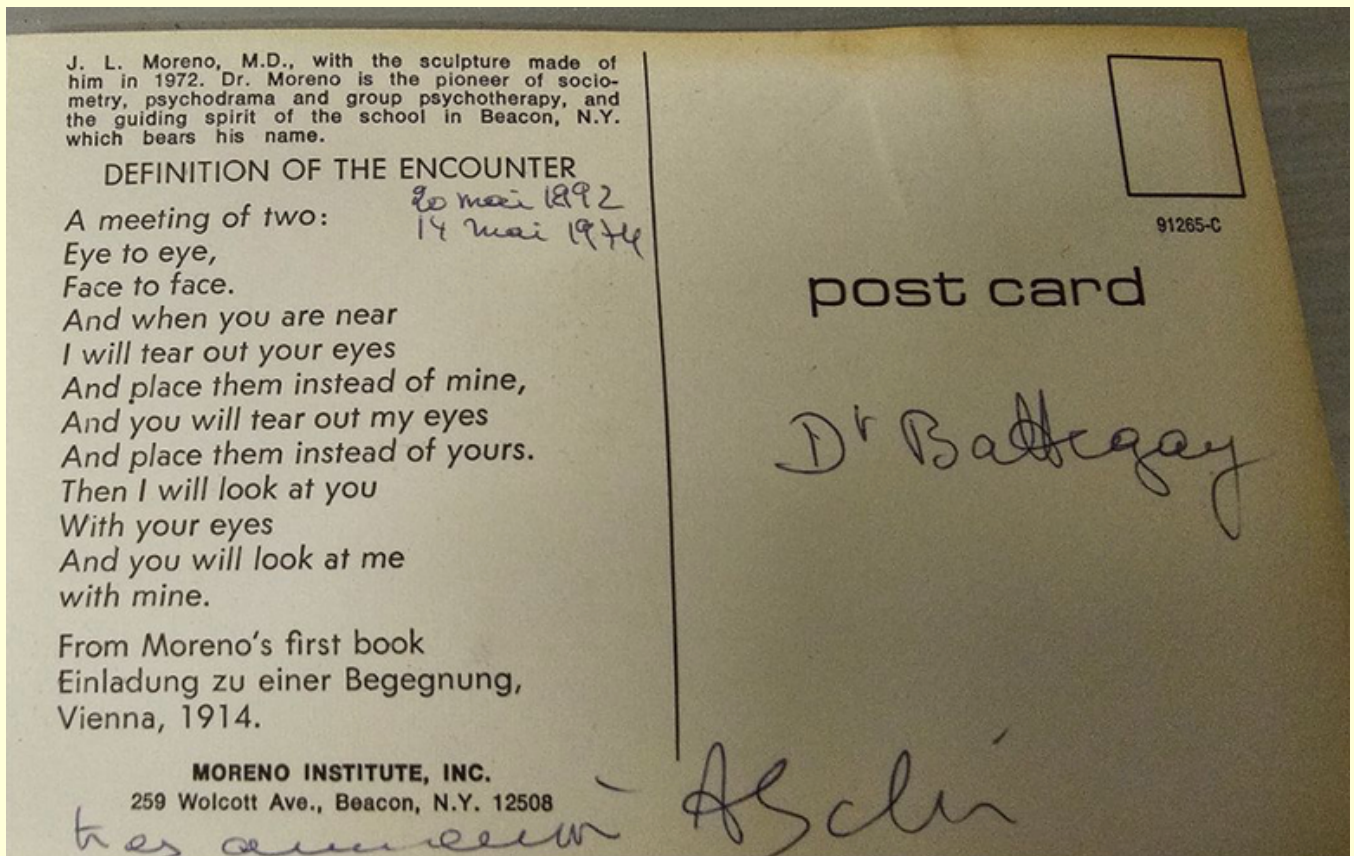 J. L. Moreno, M.D., with the sculpture made of
him in 1972. Dr. Moreno is the pioneer of socio-
metry, psychodrama and group psychotherapy, and
the guiding spirit of the school in Beacon, N.Y.
which bears his name.
DEFINITION OF THE ENCOUNTER
20 mai 1892
14 mai 1974
A meeting of two:
Eye to eye,
Face to face.
And when you are near
I will tear out your eyes
And place them instead of mine,
And you will tear out my eyes
And place them instead of yours.
Then I will look at you
With your eyes
And you will look at me
with mine.
From Moreno's first book
Einladung zu einer Begegnung,
Vienna, 1914.
MORENO INSTITUTE, INC.
259 Wolcott Ave., Beacon, N.Y. 12508
91265-C
post card
Dr Battegay